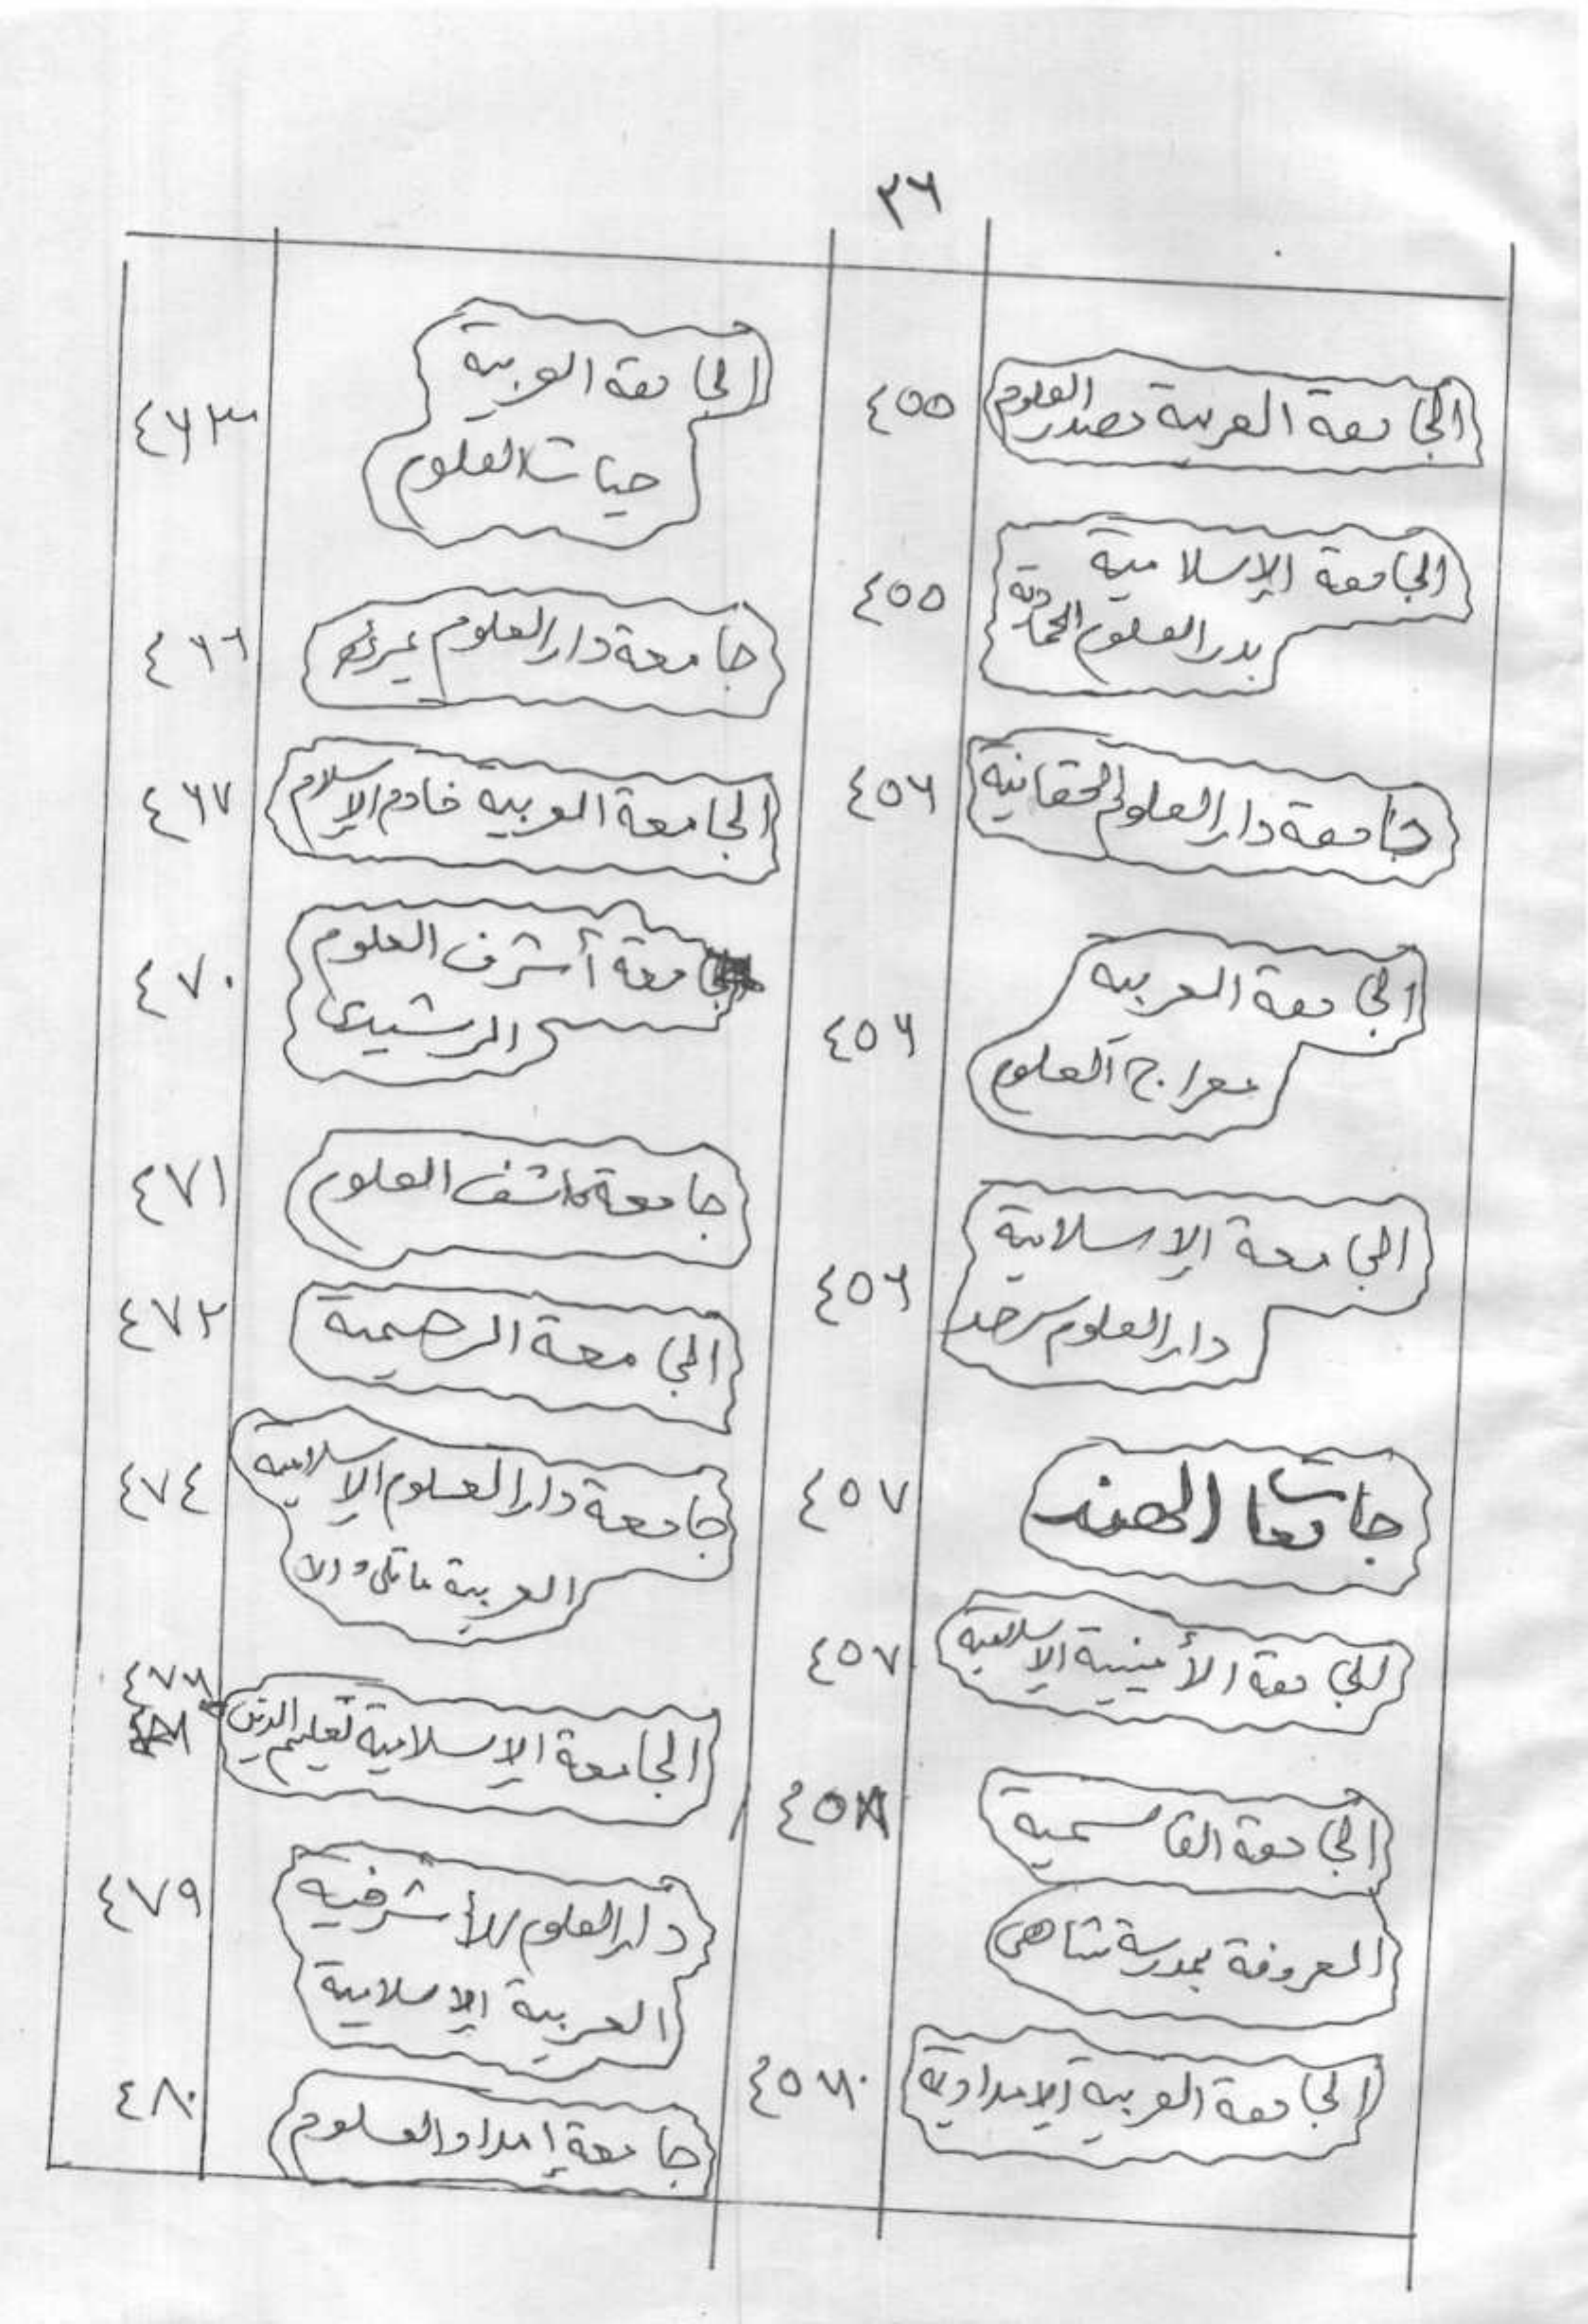 ٣٦
الجامعة العربية مصدر العلوم ٤٥٥
الجامعة الإسلامية
بدر العلوم الحمادية ٤٥٥
جامعة دار العلوم الحقانية ٤٥٦
الجامعة العربية
معراج العلوم ٤٥٦
الجامعة الإسلامية
دار العلوم سرحد ٤٥٦
جامعات الهند ٤٥٧
الجامعة الأمينية الإسلامية ٤٥٧
الجامعة القاسمية ٤٥٨
المعروفة بمدرسة شاهى
الجامعة العربية الإمدادية
الجامعة العربية
حيات العلوم ٤٦٣
جامعة دار العلوم ٤٦٦
الجامعة العربية خادم الإسلام ٤٦٧
جامعة أشرف العلوم
الرشيدي ٤٧٠
جامعة كاشف العلوم ٤٧١
الجامعة الرحيمية ٤٧٢
جامعة دار العلوم الإسلامية ٤٧٤
العربية ماتلى والا
الجامعة الإسلامية تعليم الدين ٤٧٦
دار العلوم الأشرفية ٤٧٩
العربية الإسلامية
جامعة إمداد العلوم ٤٨٠